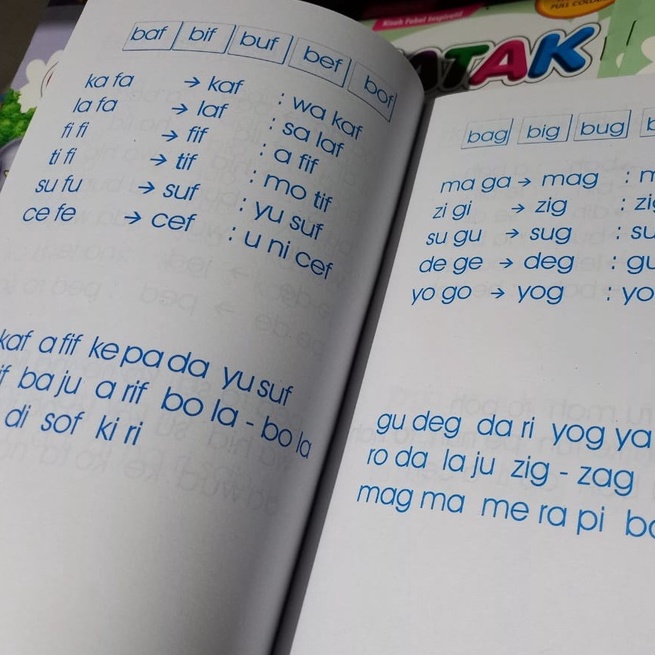 Kisah Fabel Inspiratif
FULL COLOUR
baf bif buf bef bof
ka fa → kaf : wa kaf
la fa → laf : sa laf
fi fi → fif : a fif
ti fi → tif : mo tif
su fu → suf : yu suf
ce fe → cef : u ni cef
kaf a fif ke pa da yu suf
if ba ju a rif bo la - bo la
di sof ki ri
bag big bug
ma ga → mag :
zi gi → zig : zi
su gu → sug : su
de ge → deg : gu
yo go → yog : yo
gu deg da ri yog ya
ro da la ju zig - zag
mag ma me ra pi